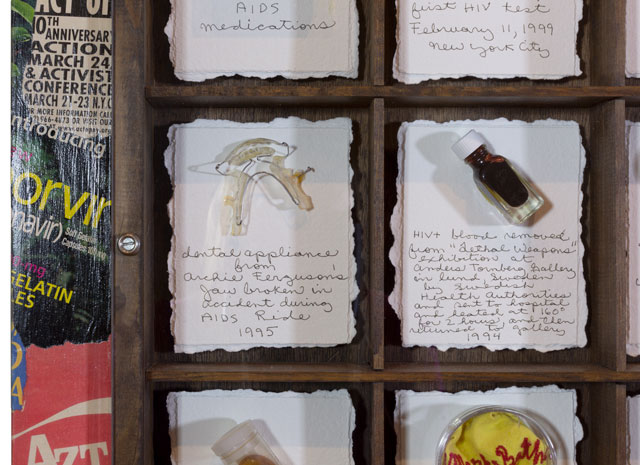 ACT UP
10TH
ANNIVERSARY
ACTION
MARCH 24,
& ACTIVIST
CONFERENCE
MARCH 21-23 N.Y.C
FOR MORE INFORMATION CALL
introducing
orvir
navir)
mg
GELATIN
LES
AZT
AIDS
medications
first HIV test
February 11, 1999
New York City
dental appliance
from
Archie Ferguson's
jaw broken in
accident during
AIDS Ride
1995
HIV+ blood removed
from "Lethal Weapons"
exhibition at
Anders Tornberg Gallery
in Lund Sweden
by Swedish
Health Authorities
and sent to hospital
and heated at 160°
for 2 hours and then
returned to gallery
1994